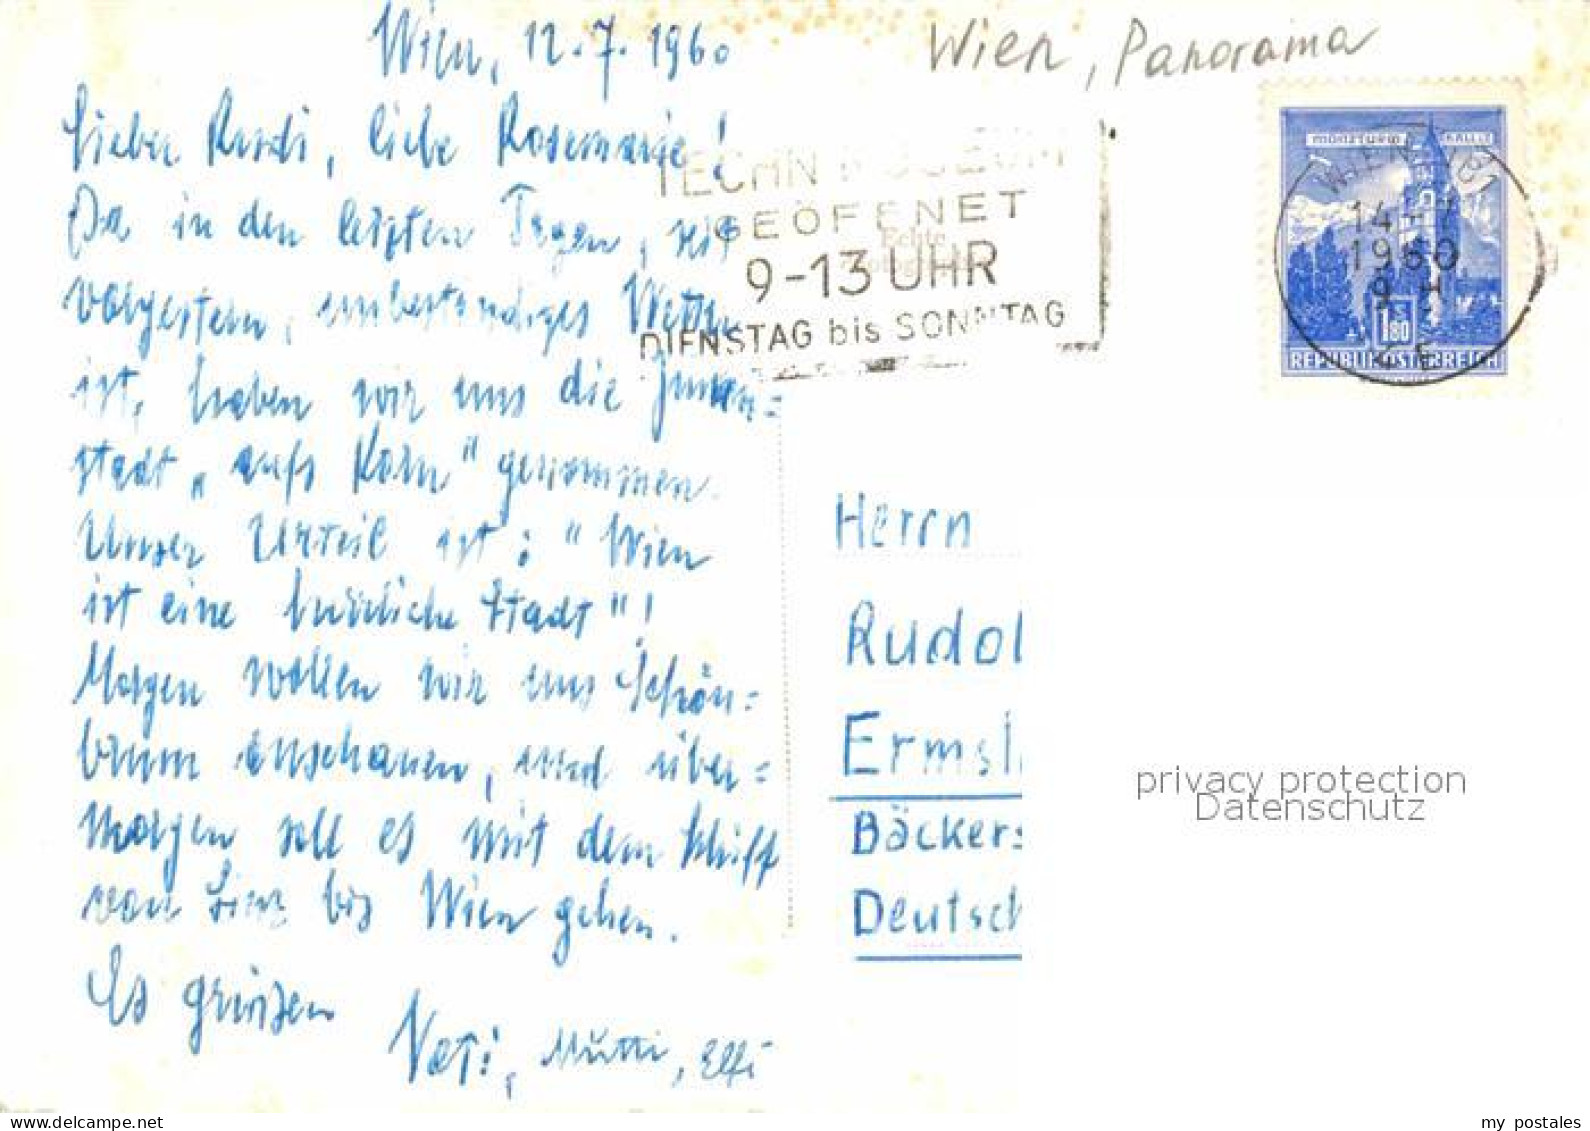 Wien, 12.7.1960
Wien, Panorama
Lieber Rudi, liebe Rosemarie!
Da in den letzten Tagen, seit
vorgestern, unbeständiges Wetter
ist, haben wir uns die Innen=
stadt „aufs Korn" genommen.
Unser Urteil ist: "Wien
ist eine herrliche Stadt"!
Morgen wollen wir uns Schön=
brunn anschauen, und über=
morgen soll es mit dem Schiff
von Linz bis Wien gehen.
Es grüßen
Vati, Mutti, Elfi
TECHN MUSEUM
GEÖFFNET
9-13 UHR
DIENSTAG bis SONNTAG
Echte
MÜNZTURM HALL i.T.
WIEN
14 -7
1960
9 H
1.80
REPUBLIK ÖSTERREICH
Herrn
Rudol
Ermsl
Bäckers
Deutsch
privacy protection
Datenschutz
my_postales